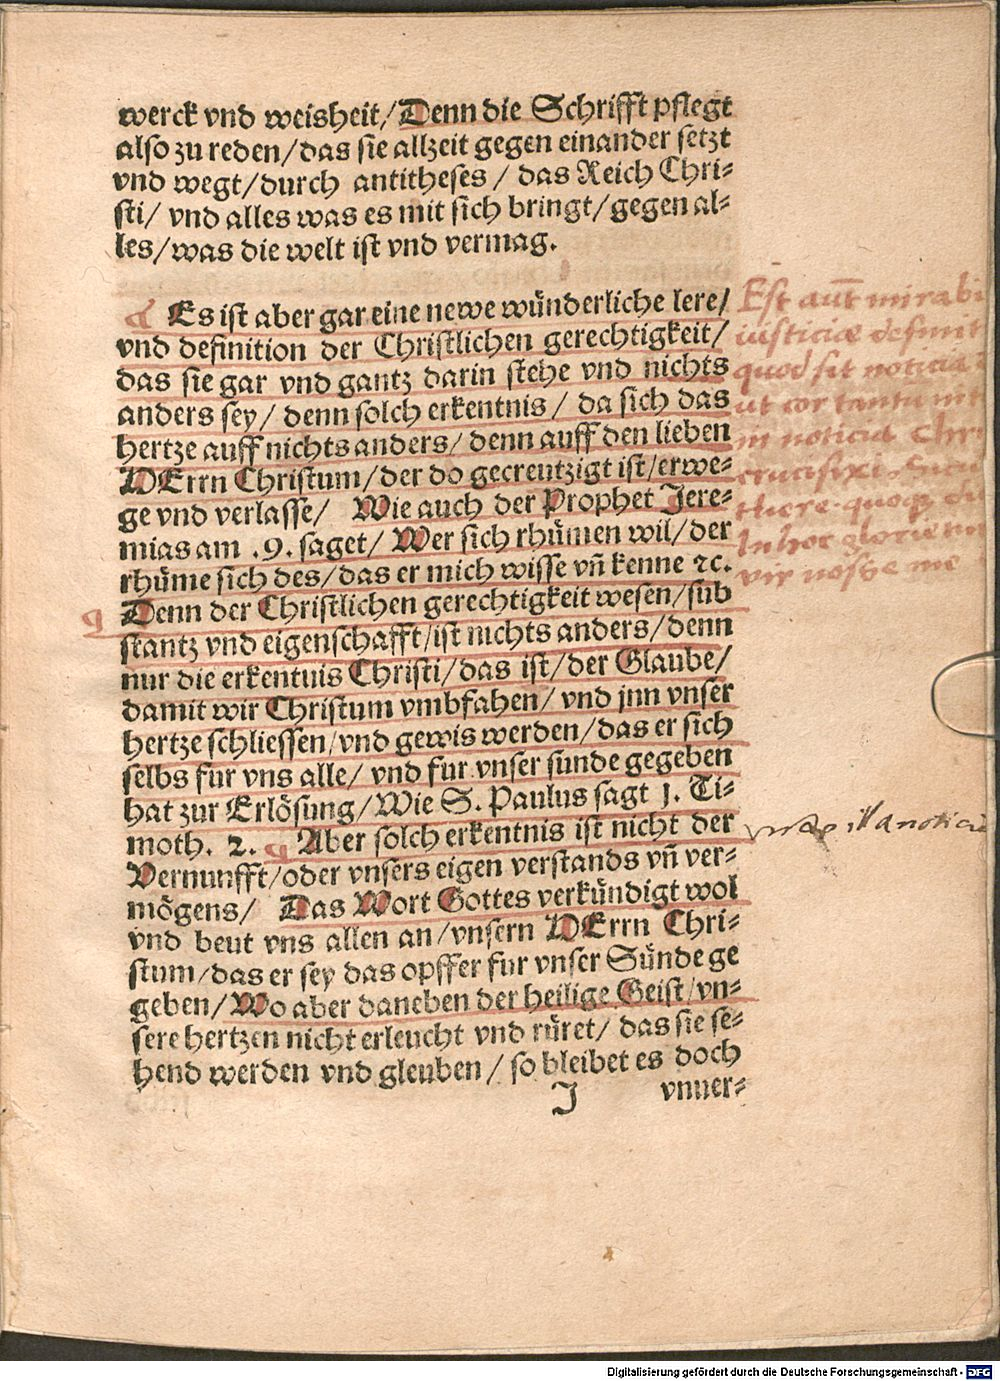 werck vnd weisheit/Denn die Schrifft pflegt
also zu reden/das sie allzeit gegen einander setzt
vnd wegt/durch antitheses / das Reich Chri-
sti/ vnd alles was es mit sich bringt/gegen al-
les/was die welt ist vnd vermag.
Es ist aber gar eine newe wünderliche lere/
vnd definition der Christlichen gerechtigkeit/
das sie gar vnd gantz darin stehe vnd nichts
anders sey/ denn solch erkentnis / da sich das
hertze auff nichts anders/denn auff den lieben
HErrn Christum/der do gecreutzigt ist/erwe-
ge vnd verlasse/ Wie auch der Prophet Jere-
mias am .9. saget/ Wer sich rhümen wil/der
rhüme sich des/das er mich wisse vñ kenne ꝛc.
Denn der Christlichen gerechtigkeit wesen/sub
stantz vnd eigenschafft/ist nichts anders/denn
nur die erkentuis Christi/das ist/der Glaube/
damit wir Christum vmbfahen/ vnd jnn vnser
hertze schliessen/vnd gewis werden/das er sich
selbs fur vns alle/ vnd fur vnser sunde gegeben
hat zur Erlösung/Wie S. Paulus sagt 1. Ti-
moth. 2. Aber solch erkentnis ist nicht der
Vernunfft/oder vnsers eigen verstands vñ ver-
mögens/ Das Wort Gottes verkündigt wol
vnd beut vns allen an/vnsern HErrn Chri-
stum/das er sey das opffer fur vnser Sünde ge
geben/Wo aber daneben der heilige Geist/vn-
sere hertzen nicht erleucht vnd rüret/ das sie se-
hend werden vnd gleuben / so bleibet es doch
J vnuer-
Est aut̄ mirabi
iusticiæ definit
quod sit noticia
ut cor tantu nit
in noticia Chr
crucifixi
there quoqꝫ
In hoc glorie
vir nosse me
illa noticia
Digitalisierung gefördert durch die Deutsche Forschungsgemeinschaft - DFG